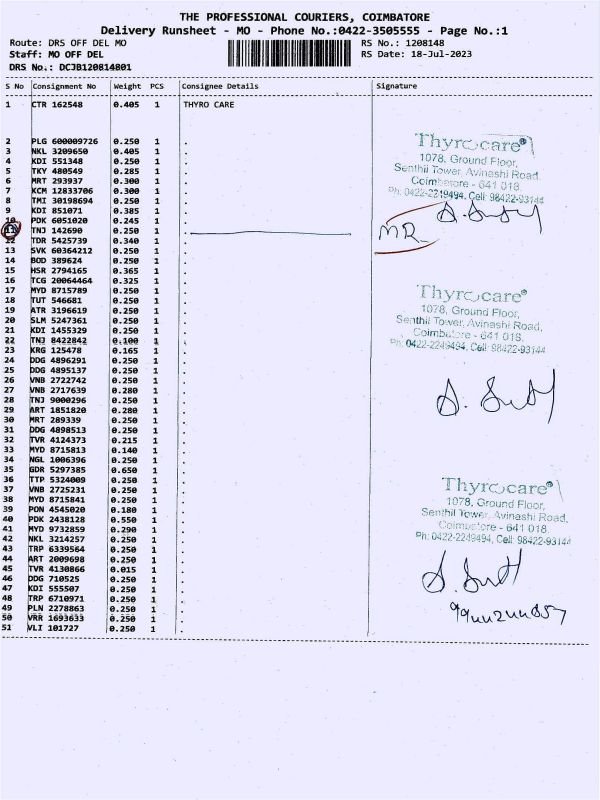 THE PROFESSIONAL COURIERS, COIMBATORE
Delivery Runsheet - MO - Phone No.:0422-3505555 - Page No.:1
Route: DRS OFF DEL MO RS No.: 1208148
Staff: MO OFF DEL RS Date: 18-Jul-2023
DRS No.: DCJB120814801
S No Consignment No Weight PCS Consignee Details Signature
1 CTR 162548 0.405 1 THYRO CARE
2 PLG 600009726 0.250 1 .
3 NKL 3209650 0.405 1 .
4 KDI 551348 0.250 1 .
5 TKY 480549 0.285 1 .
6 MRT 293937 0.300 1 .
7 KCM 12833706 0.300 1 .
8 TMI 30198694 0.250 1 .
9 KDI 851071 0.385 1 .
10 PDK 6051020 0.245 1 .
11 TNJ 142690 0.250 1 .
12 TDR 5425739 0.340 1 .
13 SVK 60364212 0.250 1 .
14 BOD 389624 0.250 1 .
15 HSR 2794165 0.365 1 .
16 TCG 20064464 0.325 1 .
17 MYD 8715789 0.250 1 .
18 TUT 546681 0.250 1 .
19 ATR 3196619 0.250 1 .
20 SLM 5247361 0.250 1 .
21 KDI 1455329 0.250 1 .
22 TNJ 8422842 0.100 1 .
23 KRG 125478 0.165 1 .
24 DDG 4896291 0.250 1 .
25 DDG 4895137 0.250 1 .
26 VNB 2722742 0.250 1 .
27 VNB 2717639 0.280 1 .
28 TNJ 9000296 0.250 1 .
29 ART 1851820 0.280 1 .
30 MRT 289339 0.250 1 .
31 DDG 4898513 0.250 1 .
32 TVR 4124373 0.215 1 .
33 MYD 8715813 0.140 1 .
34 NGL 1006396 0.250 1 .
35 GDR 5297385 0.650 1 .
36 TTP 5324009 0.250 1 .
37 VNB 2725231 0.250 1 .
38 MYD 8715841 0.250 1 .
39 PON 4545020 0.180 1 .
40 PDK 2438128 0.550 1 .
41 MYD 9732859 0.290 1 .
42 NKL 3214257 0.250 1 .
43 TRP 6339564 0.250 1 .
44 ART 2009698 0.250 1 .
45 TVR 4130866 0.015 1 .
46 DDG 710525 0.250 1 .
47 KDI 555507 0.250 1 .
48 TRP 6710971 0.250 1 .
49 PLN 2278863 0.250 1 .
50 VRR 1693633 0.250 1 .
51 VLI 101727 0.250 1 .
Thyrocare®
1078, Ground Floor,
Senthil Tower, Avinashi Road,
Coimbatore - 641 018.
Ph: 0422-2249494, Cell: 98422-93144
MR
Thyrocare®
1078, Ground Floor,
Senthil Tower, Avinashi Road,
Coimbatore - 641 018.
Ph: 0422-2249494, Cell: 98422-93144
Thyrocare®
1078, Ground Floor,
Senthil Tower, Avinashi Road,
Coimbatore - 641 018.
Ph: 0422-2249494, Cell: 98422-93144